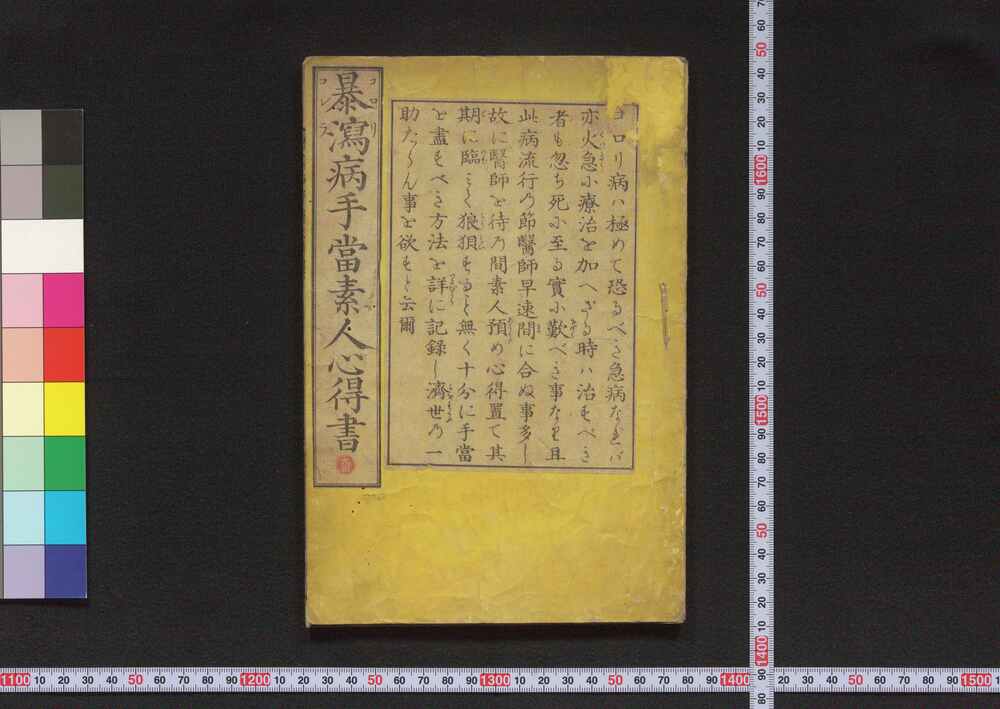 コロリ病ハ極めて恐るべき急病なれバ
亦火急に療治を加へざる時ハ治すべき
者も忽ち死に至る實に歎べき事なり且
此病流行の節醫師早速間に合ぬ事多し
故に醫師を待の間素人預め心得置て其
期に臨ミて狼狽すること無く十分に手當
を盡すべき方法を詳に記録し濟世の一
助たらん事を欲すと云爾
コロリ
コレラ
暴瀉病手當素人心得書
1100 10 20 30 40 50 60 70 80 90 1200 10 20 30 40 50 60 70 80 90 1300 10 20 30 40 50 60 70 80 90 1400 20 30 40 50 60 70 80 90 1500
70 60 50 40 30 20 10 1600 90 80 70 60 50 40 30 20 10 1500 90 80 70 60 50 40 30 20 10 1400 90 80